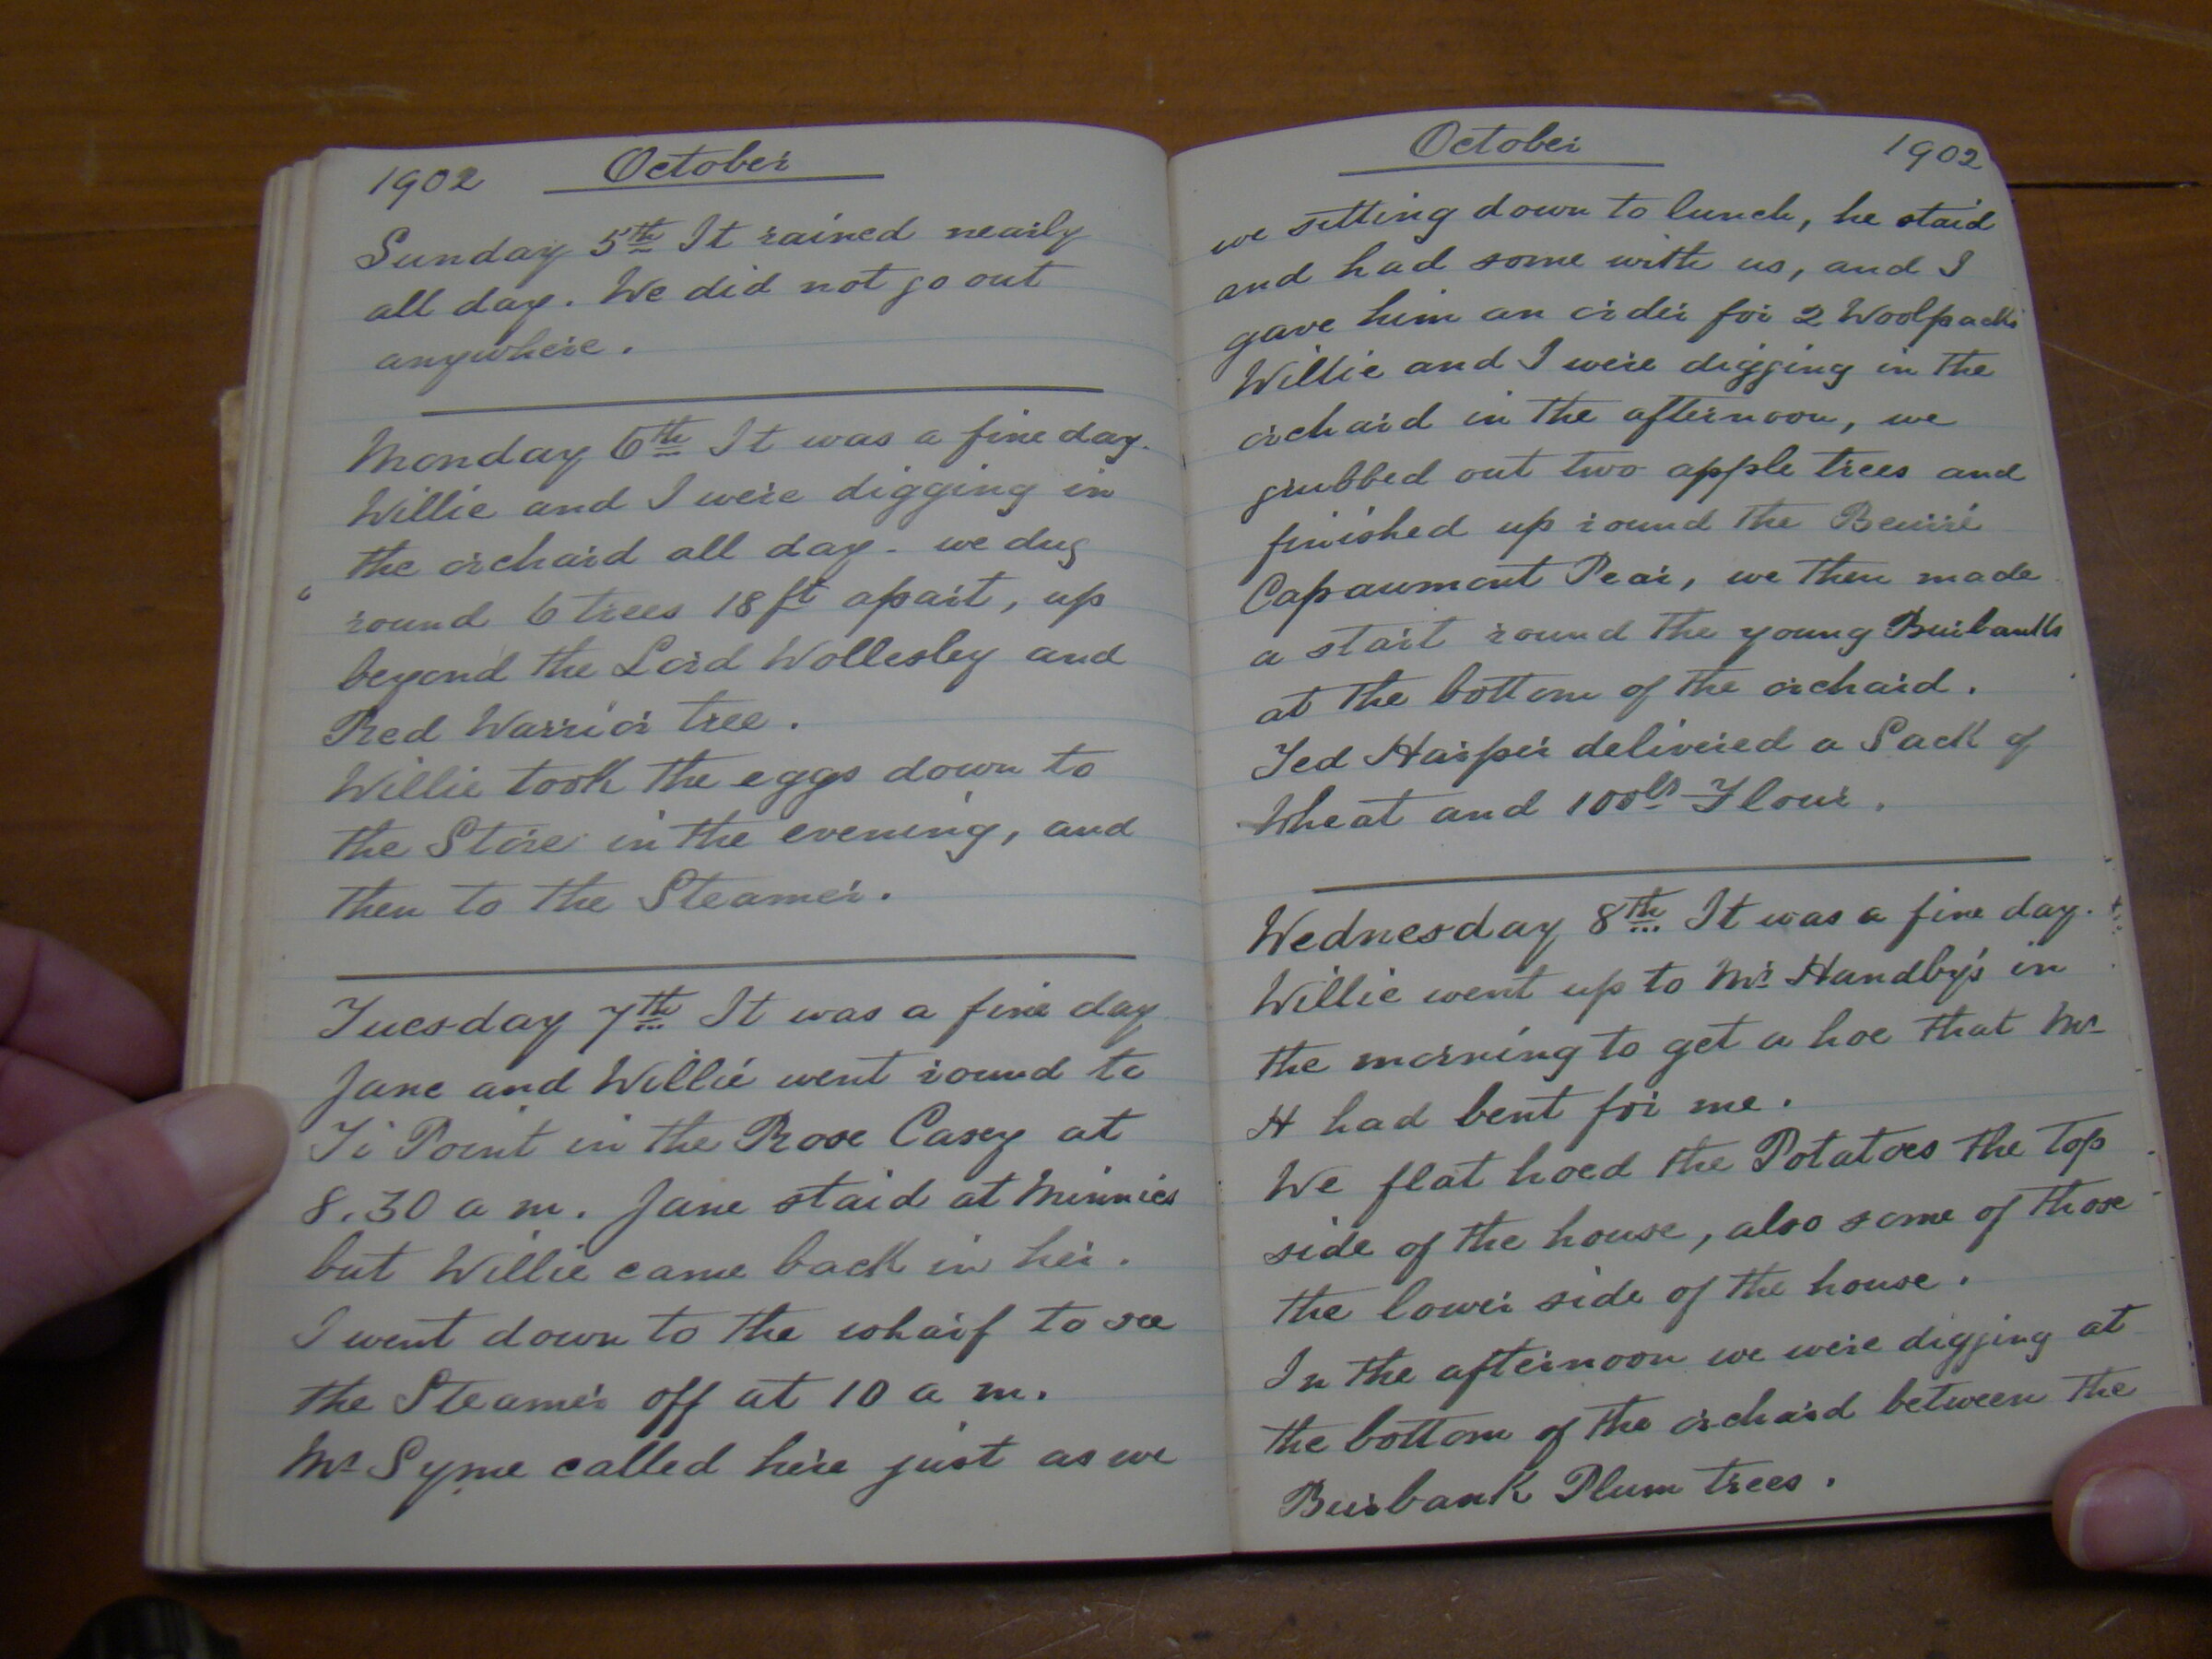 1902 October
Sunday 5th It rained nearly
all day. We did not go out
anywhere.
Monday 6th It was a fine day.
Willie and I were digging in
the orchard all day. we dug
round 6 trees 18 ft apart, up
beyond the Lord Wollesley and
Red Warrior tree.
Willie took the eggs down to
the Store in the evening, and
then to the Steamer.
Tuesday 7th It was a fine day
Jane and Willie went round to
Ti Point in the Rose Casey at
8.30 a m. Jane staid at Minnies
but Willie came back in her.
I went down to the wharf to see
the Steamer off at 10 a m.
Mr Syme called here just as we
October 1902
we sitting down to lunch, he staid
and had some with us, and I
gave him an order for 2 Woolpacks
Willie and I were digging in the
orchard in the afternoon, we
grubbed out two apple trees and
finished up round the Beurré
Capaumont Pear, we then made
a start round the young Burbanks
at the bottom of the orchard.
Ted Harper delivered a Sack of
Wheat and 100lb Flour.
Wednesday 8th It was a fine day.
Willie went up to Mr Handby's in
the morning to get a hoe that Mr
H had bent for me.
We flat hoed the Potatoes the top
side of the house, also some of those
the lower side of the house.
In the afternoon we were digging at
the bottom of the orchard between the
Burbank Plum trees.